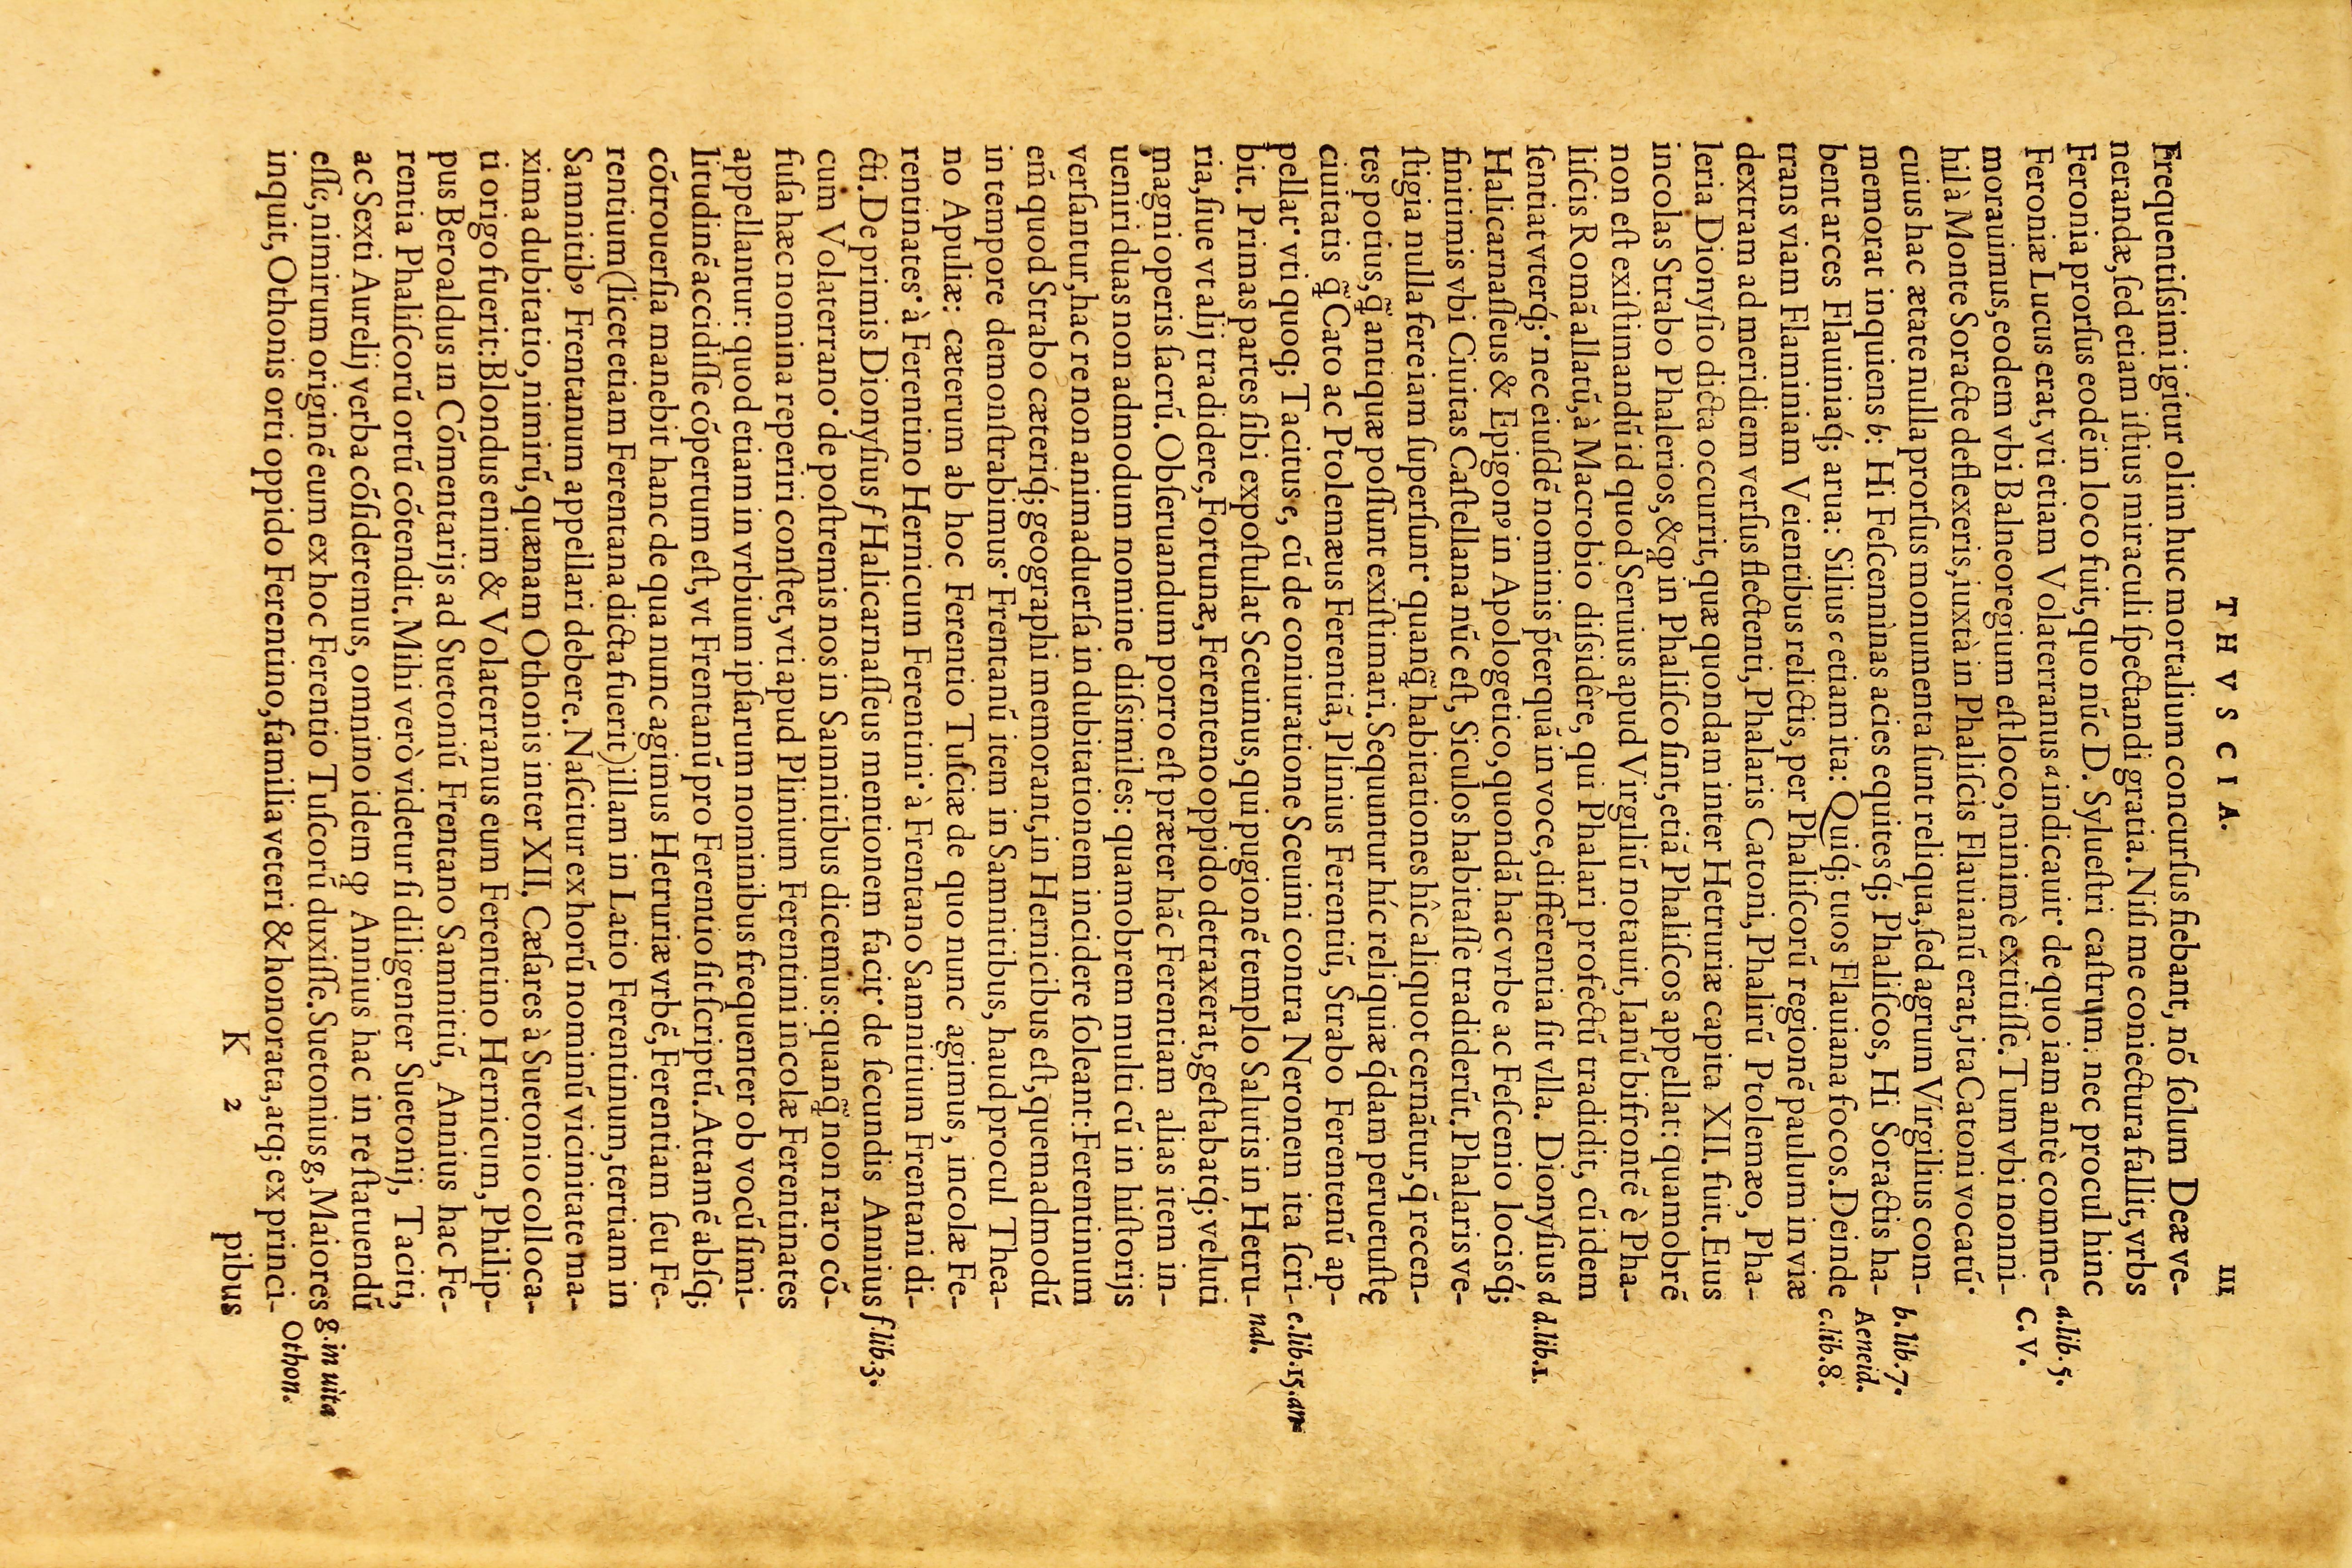 THVSCIA. III
Frequentiſsimi igitur olim huc mortalium concurſus fiebant, nõ ſolum Deæ ve-
nerandæ, ſed etiam iſtius miraculi ſpectandi gratia. Niſi me coniectura fallit, vrbs
Feronia prorſus eodẽ in loco fuit, quo nũc D. Sylueſtri caſtrum: nec procul hinc
Feroniæ Lucus erat, vti etiam Volaterranus a indicauit· de quo iam antè comme- a.lib.5.
morauimus, eodem vbi Balneoregium eſt loco, minimè extitiſſe. Tum vbi nonni- C.V.
hil à Monte Soracte deflexeris, iuxtà in Phaliſcis Flauianũ erat, ita Catoni vocatũ·
cuius hac ætate nulla prorſus monumenta ſunt reliqua, ſed agrum Virgilius com-
memorat inquiens b: Hi Feſcennìnas acies equitesq́; Phaliſcos, Hi Soractis ha- b.lib.7.
bent arces Flauiniaq́; arua: Silius c etiam ita: Quiq́; tuos Flauiana focos. Deinde Aeneid.
trans viam Flaminiam Veientibus relictis, per Phaliſcorũ regionẽ paulum in viæ c.lib.8.
dextram ad meridiem verſus flectenti, Phalaris Catoni, Phalirũ Ptolemæo, Pha-
leria Dionyſio dicta occurrit, quæ quondam inter Hetruriæ capita XII. fuit. Eius
incolas Strabo Phalerios, & ꝙ in Phaliſco ſint, etiã Phaliſcos appellat: quamobrẽ
non eſt exiſtimandũ id quod Seruius apud Virgiliũ notauit, Ianũ bifrontẽ è Pha-
liſcis Romã allatũ, à Macrobio diſsidêre, qui Phalari profectũ tradidit, cũ idem
ſentiat vterq́;· nec eiuſdẽ nominis p̃terquã in voce, differentia ſit vlla. Dionyſius d d.lib.1.
Halicarnaſſeus & Epigonꝰ in Apologetico, quondã hac vrbe ac Feſcenio locisq́;
finitimis vbi Ciuitas Caſtellana nũc eſt, Siculos habitaſſe tradiderũt. Phalaris ve-
ſtigia nulla fere iam ſuperſunt· quanq̃ habitationes hîc aliquot cernãtur, q̃ recen-
tes potius, q̃ antiquæ poſſunt exiſtimari. Sequuntur híc reliquiæ q̃dam peruetuſtę
ciuitatis q̃ Cato ac Ptolemæus Ferentiã, Plinius Ferentiũ, Strabo Ferentenũ ap-
pellat· vti quoq; Tacitus e, cũ de coniuratione Sceuini contra Neronem ita ſcri- e.lib.15.an-
bit. Primas partes ſibi expoſtulat Sceuinus, qui pugionẽ templo Salutis in Hetru- nal.
ria, ſiue vt alij tradidere, Fortunæ, Ferenteno oppido detraxerat, geſtabatq́; veluti
magni operis ſacrũ. Obſeruandum porro eſt præter hãc Ferentiam alias item in-
ueniri duas non admodum nomine diſsimiles: quamobrem multi cũ in hiſtorijs
verſantur, hac re non animaduerſa in dubitationem incidere ſoleant: Ferentinum
em̃ quod Strabo cæteriq́; geographi memorant, in Hernicibus eſt, quemadmodũ
in tempore demonſtrabimus· Frentanũ item in Samnitibus, haud procul Thea-
no Apuliæ: cæterum ab hoc Ferentio Tuſciæ de quo nunc agimus, incolæ Fe-
rentinates· à Ferentino Hernicum Ferentini· à Frentano Samnitium Frentani di-
cti. De primis Dionyſius f Halicarnaſſeus mentionem facit· de ſecundis Annius f.lib.3.
cum Volaterrano· de poſtremis nos in Samnitibus dicemus: quanq̃ non raro cõ-
fuſa hæc nomina reperiri conſtet, vti apud Plinium Ferentini incolæ Ferentinates
appellantur: quod etiam in vrbium ipſarum nominibus frequenter ob vocũ ſimi-
litudinẽ accidiſſe cõpertum eſt, vt Frentanũ pro Ferentio ſit ſcriptũ. Attamẽ abſq;
cõtrouerſia manebit hanc de qua nunc agimus Hetruriæ vrbẽ, Ferentiam ſeu Fe-
rentium (licet etiam Ferentana dicta fuerit) illam in Latio Ferentinum, tertiam in
Samnitibꝰ Frentanum appellari debere. Naſcitur ex horũ nominũ vicinitate ma-
xima dubitatio, nimirũ, quænam Othonis inter XII. Cæſares à Suetonio colloca-
ti origo fuerit: Blondus enim & Volaterranus eum Ferentino Hernicum, Philip-
pus Beroaldus in Cõmentarijs ad Suetoniũ Frentano Samnitiũ, Annius hac Fe-
rentia Phaliſcorũ ortũ cõtendit. Mihi verò videtur ſi diligenter Suetonij, Taciti,
ac Sexti Aurelij verba cõſideremus, omnino idem ꝙ Annius hac in re ſtatuendũ
eſſe, nimirum originẽ eum ex hoc Ferentio Tuſcorũ duxiſſe. Suetonius g, Maiores g.in uita
inquit, Othonis orti oppido Ferentino, familia veteri & honorata, atq; ex princi- Othon.
K 2 pibus